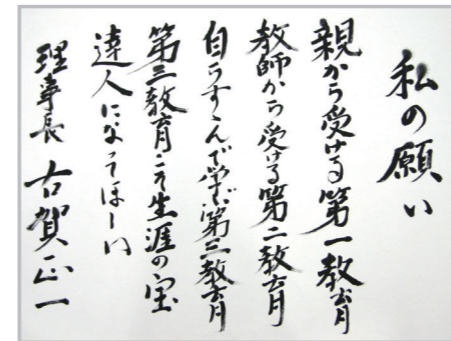 私の願い
親から受ける第一教育
教師から受ける第二教育
自らすすんで学ぶ第三教育
第三教育こそ生涯の宝
達人になってほしい
理事長 古賀正一